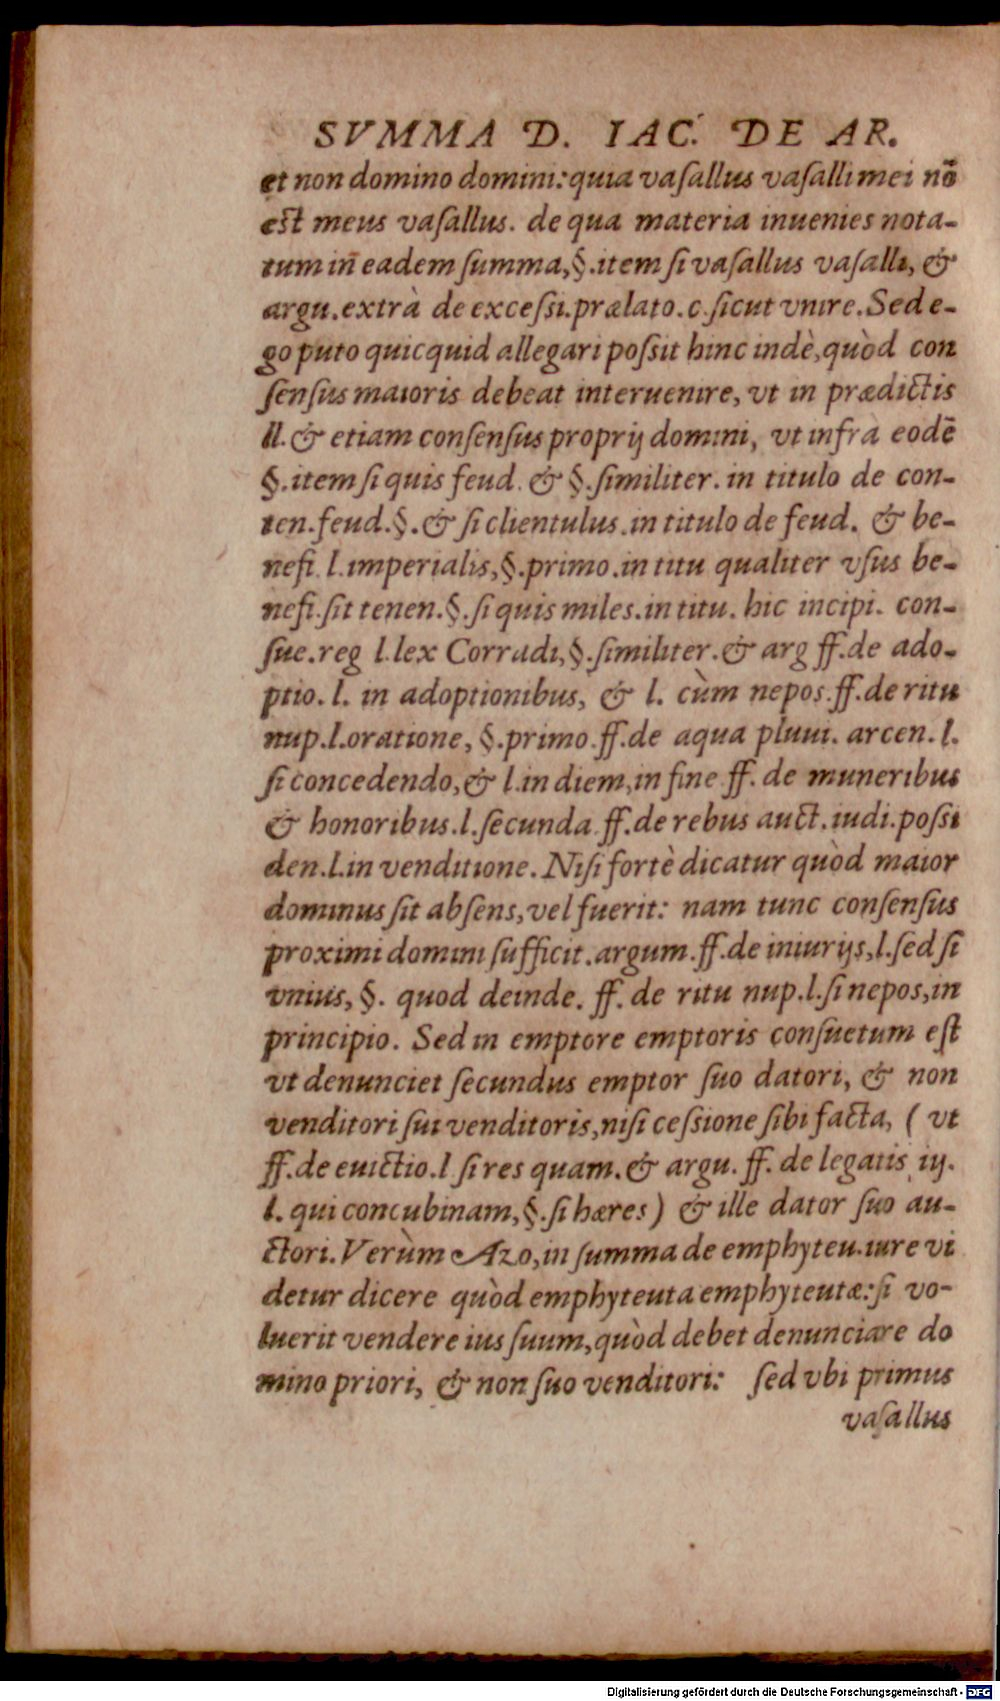 SVMMA D. IAC. DE AR.
et non domino domini: quia vaſallus vaſalli mei nō
eſt meus vaſallus. de qua materia inuenies nota-
tum in̄ eadem ſumma, §. item ſi vaſallus vaſalli, &
argu. extrà de exceſſi. prælato. c. ſicut vnire. Sed e-
go puto quicquid allegari poſſit hinc indè, quòd con
ſenſus maioris debeat interuenire, vt in prædictis
ll. & etiam conſenſus proprij domini, vt infrà eodē
§. item ſi quis feud. & §. ſimiliter. in titulo de con-
ten. feud. §. & ſi clientulus. in titulo de feud. & be-
nefi. l. imperialis, §. primo. in titu qualiter vſus be-
nefi. ſit tenen. §. ſi quis miles. in titu. hic incipi. con-
ſue. reg l. lex Corradi, §. ſimiliter. & arg ff. de ado-
ptio. l. in adoptionibus, & l. cùm nepos. ff. de ritu
nup. l. oratione, §. primo. ff. de aqua pluui. arcen. l.
ſi concedendo, & l. in diem, in fine ff. de muneribus
& honoribus. l. ſecunda. ff. de rebus auct. iudi. poſſi
den. l. in venditione. Niſi fortè dicatur quòd maior
dominus ſit abſens, vel fuerit: nam tunc conſenſus
proximi domini ſufficit. argum. ff. de iniurijs, l. ſed ſi
vnius, §. quod deinde. ff. de ritu nup. l. ſi nepos, in
principio. Sed in emptore emptoris conſuetum eſt
vt denunciet ſecundus emptor ſuo datori, & non
venditori ſui venditoris, niſi ceſſione ſibi facta, ( vt
ff. de euictio. l ſi res quam. & argu. ff. de legatis iij.
l. qui concubinam, §. ſi hæres) & ille dator ſuo au-
ctori. Verùm Azo, in ſumma de emphyteu. iure vi
detur dicere quòd emphyteuta emphyteutæ: ſi vo-
luerit vendere ius ſuum, quòd debet denunciare do
mino priori, & non ſuo venditori: ſed vbi primus
vaſallus
Digitalisierung gefördert durch die Deutsche Forschungsgemeinschaft - DFG